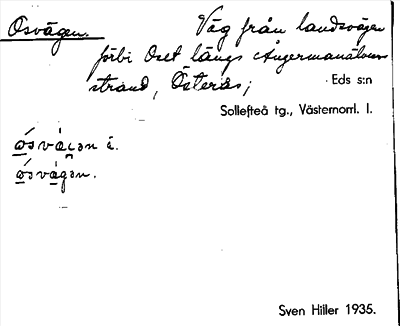 Osvägen. Väg från landsvägen
förbi Oset längs Ångermanälvens
strand, Österås; Eds s:n
Sollefteå tg., Västernorrl. l.
å.
Sven Hiller 1935.